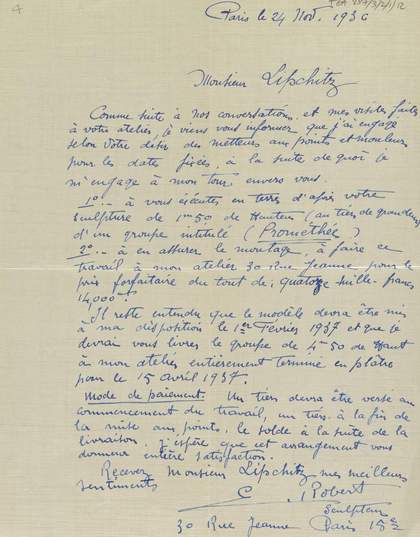 4
TGA 897/3/2/1/12
Paris le 24 Nov. 1936
Monsieur Lipschitz
Comme suite à nos conversations, et mes visites faites
à votre atelier, je viens vous informer que j'ai engagé
selon votre désir des metteurs aux points et mouleurs
pour les dates fixées, à la suite de quoi je
m'engage à mon tour envers vous
1º.- à vous exécuter en terre d'après votre
sculpture de 1m50 de Hauteur (au tiers de grandeur)
d'un groupe intitulé (Prométhée)
2º.- à en assurer le montage, à faire ce
travail à mon atelier 30 Rue Jeanne pour le
prix forfaitaire du tout de: quatorze mille francs
14,000 f
Il reste entendu que le modèle devra être mis
à ma disposition le 1er Février 1937 et que je
devrai vous livrer le groupe de 4m50 de Haut
à mon atelier entièrement terminé en plâtre
pour le 15 avril 1937.
Mode de paiement. Un tiers devra être versé au
commencement du travail, un tiers à la fin de
la mise aux points, le solde à la suite de la
livraison. J'espère que cet arrangement vous
donnera entière satisfaction.
Recevez Monsieur Lipschitz mes meilleurs
sentiments
C. Robert
Sculpteur
30 Rue Jeanne Paris 15e